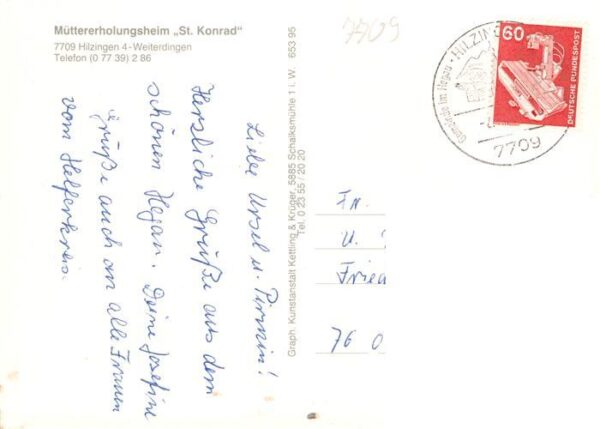 Müttererholungsheim „St. Konrad"
7709 Hilzingen 4-Weiterdingen
Telefon (0 77 39) 2 86
Liebe Ursel u.
Herzliche Grüße aus dem
schönen Hegau. Deine Josefine
Grüße auch an alle Frauen
vom Helferkreis.
Graph. Kunstanstalt Kettling & Krüger, 5885 Schalksmühle 1 i. W. 653 95
Tel. 0 23 55 / 20 20
7709
Gemeinde im Hegau · HILZIN
7709
60
DEUTSCHE BUNDESPOST
Fam.
u.
Fried
76 O